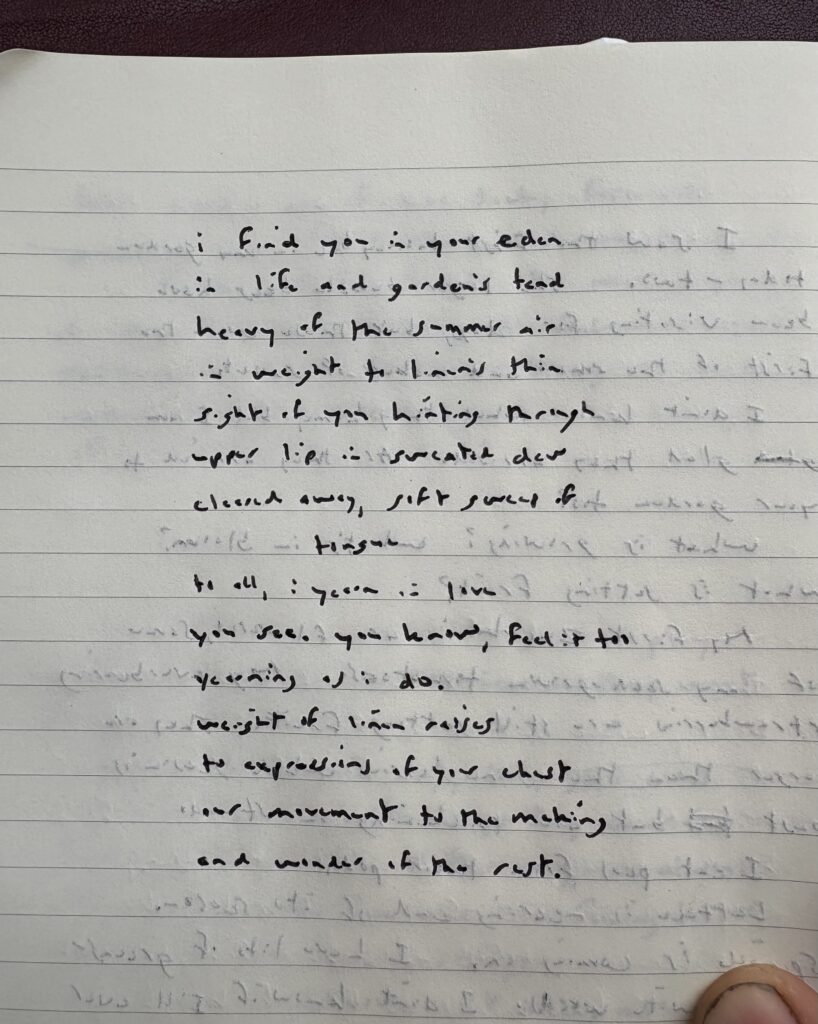 i find you in your eden
in life and garden's tend
heavy of the summer air
in weight to linen's thin
sight of you hinting through
upper lip in sweated dew
cleared away, soft sweep of
tongue
to all, i yearn in love
you see. you know, feel it too
yearning as i do.
weight of linen raises
to expressions of your chest
our movement to the making
and wonder of the rest.